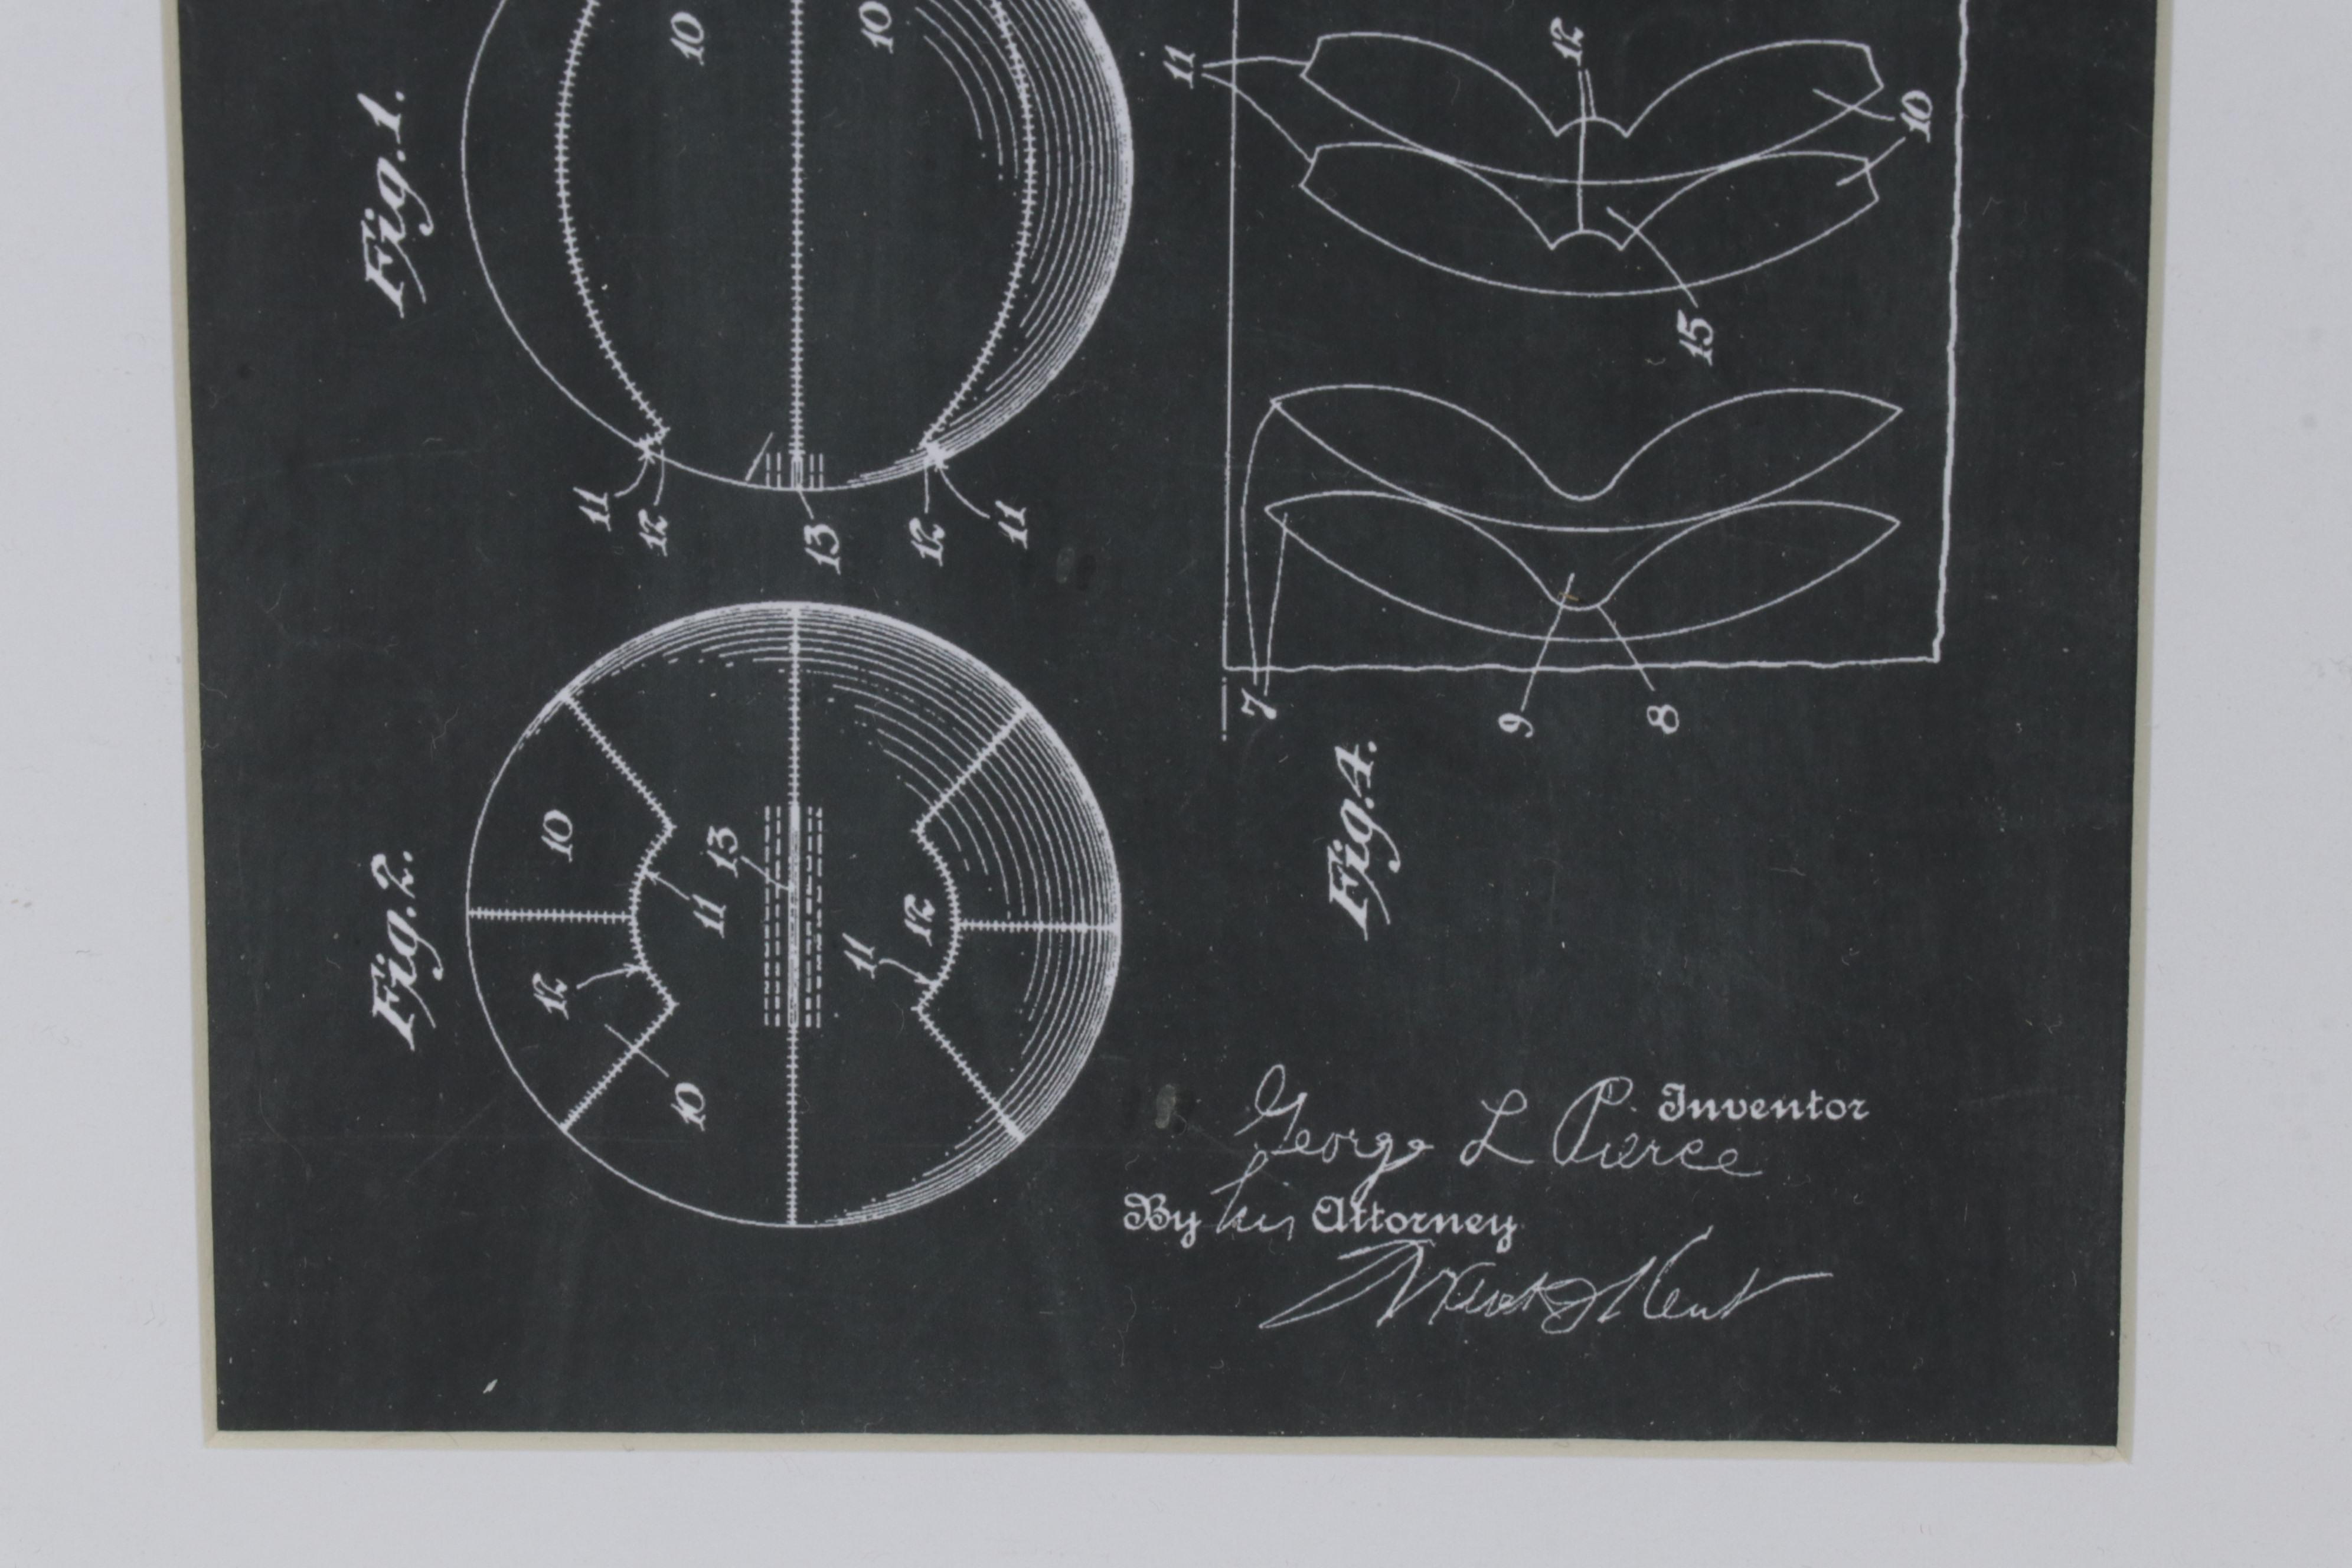 Fig.1.
10
10
11
12
13
12
11
11
12
10
15
7
9
8
Fig.4.
Fig.2.
10
12
11
13
11
12
10
Inventor
George L Pierce
By his Attorney
Kent